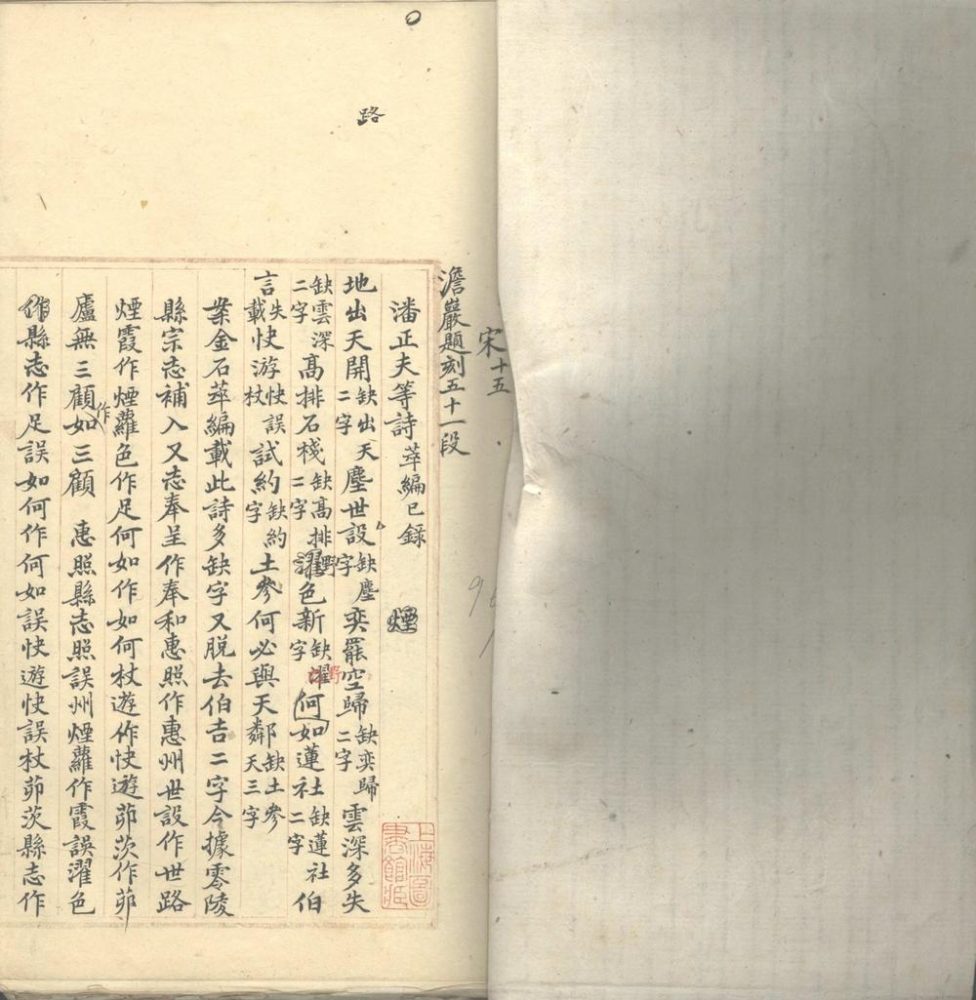 路
宋十五
澹巖題刻五十一段
潘正夫等詩萃編已錄 煙
地出天開缺出天二字塵世設缺塵字奕罷空歸缺奕歸二字雲深多失
缺雲深二字高排石棧缺高排二字濯野色新缺濯字野何如蓮社缺蓮社二字伯
言失載快游快誤杖試約缺約字土參何必與天鄰缺土參天三字
案金石萃編載此詩多缺字又脫去伯吉二字今據零陵
縣宗志補入又志奉呈作奉和惠照作惠州世設作世路
煙霞作煙蘿色作足何如作如何杖遊作快遊茆茨作茆
廬無三顧如作三顧 惠照縣志照誤州煙蘿作霞誤濯色
作縣志作足誤如何作何如誤快遊快誤杖茆茨縣志作
上海圖書館藏